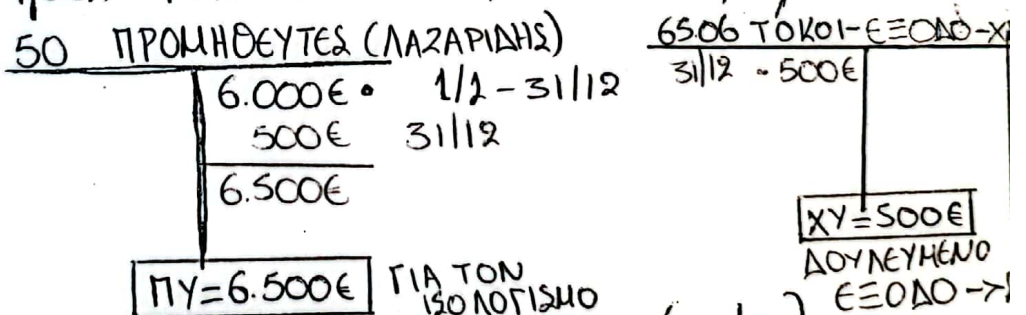 50 ΠΡΟΜΗΘΕΥΤΕΣ (ΛΑΖΑΡΙΔΗΣ)
6.000€ • 1/1 - 31/12
500€ 31/12
6.500€
ΠΥ=6.500€ ΓΙΑ ΤΟΝ
ΙΣΟΛΟΓΙΣΜΟ
65.06 ΤΟΚΟΙ-ΕΞΟΔΟ-Χ
31/12 - 500€
ΧΥ=500€
ΔΟΥΛΕΥΜΕΝΟ
ΕΞΟΔΟ ->